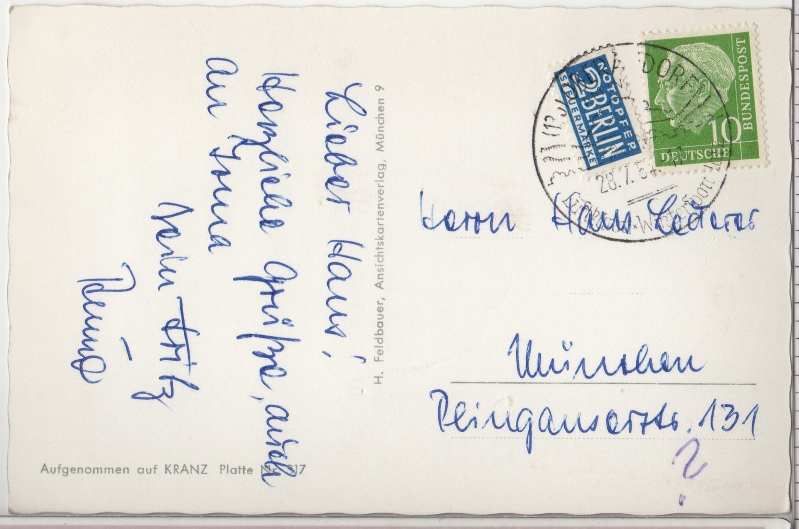 Lieber Hans!
Herzliche Grüße, auch
an Irma
Dein Fritz
H. Feldbauer, Ansichtskartenverlag, München 9
Aufgenommen auf KRANZ Platte Nr. 917
NOTOPFER
2 BERLIN
STEUERMARKE
DEUTSCHE
BUNDESPOST
10
28.7.54
Herrn Hans Lederer
München
Plinganserstr. 131
?